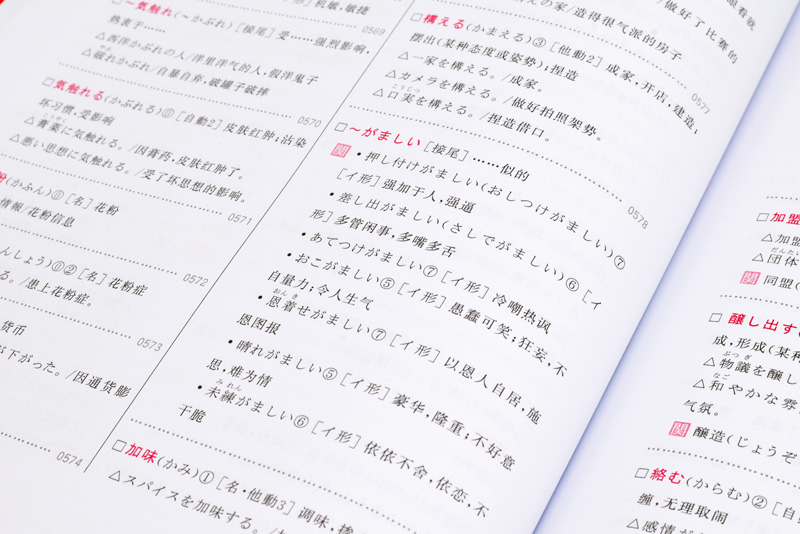 □～気触れ(～かぶれ)[接尾]受……强烈影响,
热衷于……
△西洋かぶれの人/洋里洋气的人,假洋鬼子
△破れかぶれ/自暴自弃,破罐子破摔
机敏,敏捷
0569
0570
□気触れる(かぶれる)①[自動2]皮肤红肿;沾染
坏习惯,受影响
こうやく
△膏薬に気触れる。/因膏药,皮肤红肿了。
△悪い思想に気触れる。/受了坏思想的影响。
0571
粉(かふん)①[名]花粉
情報/花粉信息
0572
んしょう)①②[名]花粉症
る。/患上花粉症。
0573
货币
が下がった。/因通货膨
0574
の家/造得很气派的房子
/做好了比赛的
0577
□構える(かまえる)③[他動2]成家,开店,建造;
摆出(某种态度或姿势);捏造
△一家を構える。/成家。
△カメラを構える。/做好拍照架势。
こうじつ
△口実を構える。/捏造借口。
0578
□～がましい[接尾]……似的
関 •押し付けがましい(おしつけがましい)⑦
[イ形]强加于人,强逼
•差し出がましい(さしでがましい)⑥[イ
形]多管闲事,多嘴多舌
•あてつけがましい⑦[イ形]冷嘲热讽
•おこがましい⑤[イ形]愚蠢可笑;狂妄,不
自量力;令人生气
おん き
•恩着せがましい⑦[イ形]以恩人自居,施
恩图报
•晴れがましい⑤[イ形]豪华,隆重;不好意
思,难为情
みれん
•未練がましい⑥[イ形]依依不舍,依恋,不
干脆
□加味(かみ)①[名·他動3]调味,掺
△スパイスを加味する。/
□加盟
△加盟
だんたい
△団体
関 同盟(
□醸し出す
成,形成(某种
ぶつぎ
△物議を醸し
なご
△和やかな雰
气氛。
関 醸造(じょうぞ
□絡む(からむ)②[自
缠,无理取闹
△感情が